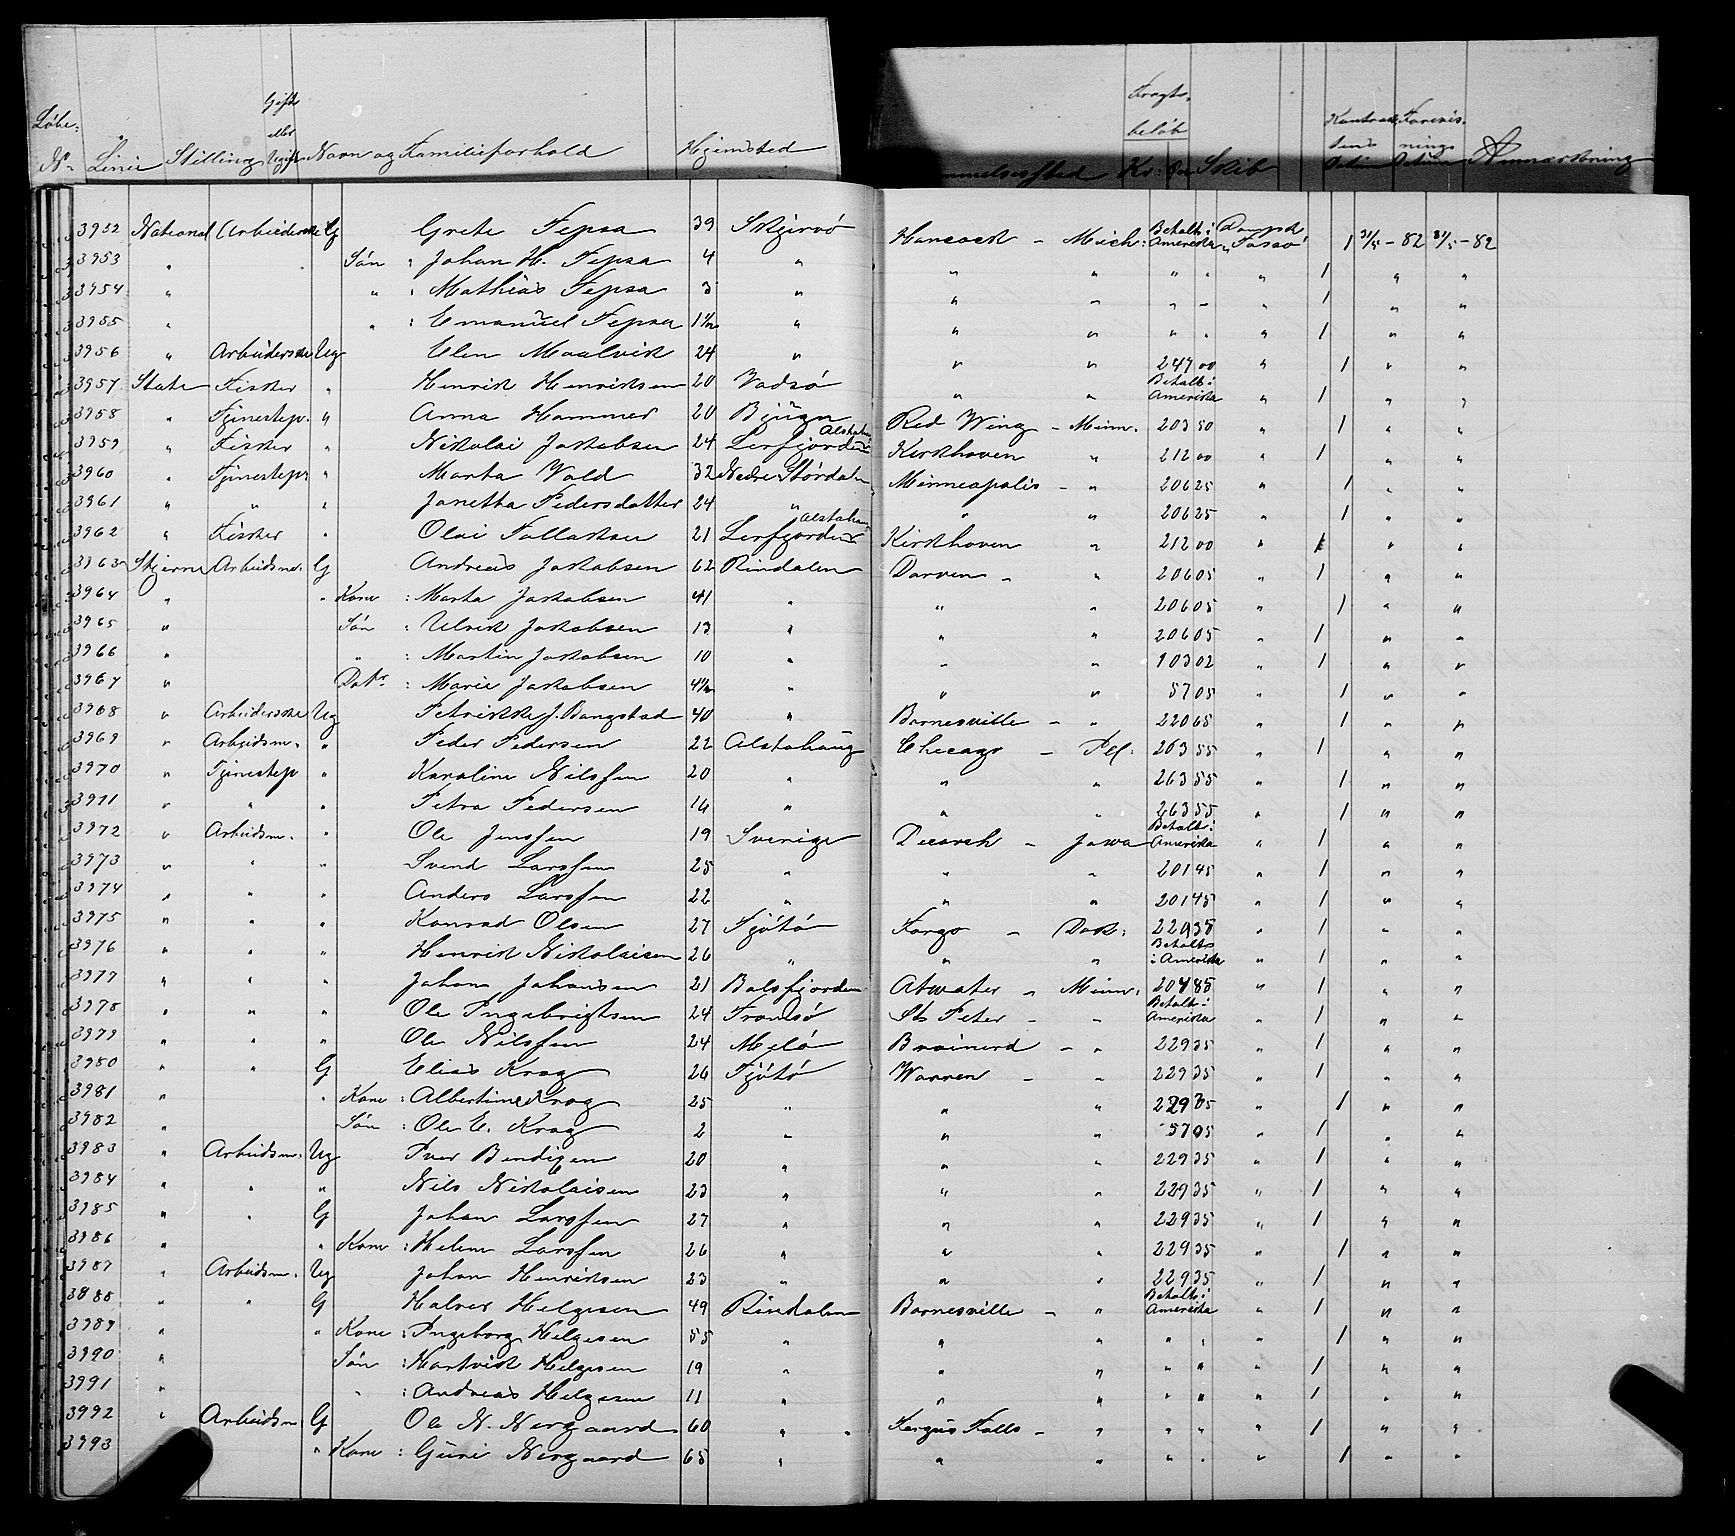 Løbe- Nr. Linie Stilling Gift eller Ugift Navn og Familieforhold Hjemsted Kr: Skib Anmærkning
Fragtbeløb
3952 National Arbeiderske G Grete Fepsa 39 Skjervø Hancock - Mich: Betalt i Amerika Dampsk "Tasso" 1 31/5 - 82 31/5 - 82
3953 " Søn : Johan H. Fepsa 4 " " " " " " 1 " "
3954 " " : Mathias Fepsa 3 " " " " - " 1 " "
3955 " " : Emanuel Fepsa 1 1/2 " " " " " " 1 " "
3956 " Arbeiderske Ug Elen Maalvik 24 " " " 247 00 " 1 " "
3957 State Fisker " Henrik Henriksen 20 Vadsø " " Betalt i Amerika " 1 " "
3958 " Tjenestep. " Anna Hammer 20 Bjugn Red Wing - Minn. 203 50 " 1 " "
3959 " Fisker " Nikolai Jakobsen 24 Leirfjorden Alstahaug Kerkhoven " 212 00 " 1 " "
3960 " Tjenestep. " Marta Vold 32 Nedre Størdalen Minneapolis - " 206 25 " 1 " "
3961 " " " Janetta Pedersdatter 24 " " " 206 25 " 1 " "
3962 " Fisker " Olai Tollaksen 21 Leirfjorden Alstahaug Kirkhoven " 212 00 " 1 " "
3963 Stjerne Arbeidsm. G Andreas Jakobsen 62 Rindalen Darven - " 206 05 " 1 " "
3964 " " Kone : Marta Jakobsen 41 " " " 206 05 " 1 " "
3965 " Søn : Ulrik Jakobsen 13 " " " 206 05 " 1 " "
3966 " " : Martin Jakobsen 10 " " " 103 02 " 1 " "
3967 " Datr : Marie Jakobsen 4 1/2 " " " 57 05 " 1 " "
3968 " Arbeiderske Ug Petrikke J. Bangstad 40 " Barnesville - " 220 65 " 1 " "
3969 " Arbeidsm. " Peder Pedersen 22 Alstahaug Chicago - Ill. 263 55 " 1 " "
3970 " Tjenestep " Karoline Nilssen 20 " " " 263 55 " 1 " "
3971 " " " Petra Pedersen 14 " " " 263 55 " 1 " "
3972 " Arbeidsm. " Ole Jenssen 19 Sverige Decorah - Jowa Betalt i Amerika " 1 " "
3973 " " " Svend Larssen 25 " " " 201 45 " 1 " "
3974 " " " Anders Larssen 22 " " " 201 45 " 1 " "
3975 " " " Konrad Olsen 27 Tjøtø Fargo - Dak: 229 35 " 1 " "
3976 " " " Henrik Nikolaisen 26 " " " Betalt i Amerika " 1 " "
3977 " " " Johan Johansen 21 Balsfjorden Atwater - Minn. 204 85 " 1 " "
3978 " " " Ole Ingebrigtsen 24 Tromsø St Peter - " Betalt i Amerika " 1 " "
3979 " " " Ole Nilssen 24 Melø Brainerd - " 229 35 " 1 " "
3980 " " G Elias Krag 26 Tjøtø Warren - " 229 35 " 1 " "
3981 " " Kone : Albertine Krog 25 " " " 229 35 " 1 " "
3982 " Søn : Ole E. Krog 2 " " " 57 05 " 1 " "
3983 " Arbeidsm. Ug Iver Bendixen 20 " " " 229 35 " 1 " "
3984 " " " Nils Nikolaisen 23 " " " 229 35 " 1 " "
3985 " " G Johan Larssen 27 " " " 229 35 " 1 " "
3986 " " Kone : Helene Larssen 26 " " " 229 35 " 1 " "
3987 " Arbeidsm. Ug Johan Henriksen 23 " " " 229 35 " 1 " "
3988 " " G Halvor Helgesen 49 Rindalen Barnesville - " Betalt i Amerika " 1 " "
3989 " " Kone : Ingeborg Helgesen 55 " " " " " " 1 " "
3990 " Søn : Hartvik Helgesen 19 " " " " " " 1 " "
3991 " " : Andreas Helgesen 11 " " " " " " 1 " "
3992 " Arbeidsm G Ole N. Nergaard 60 " " Fergus Falls - " " " " 1 " "
3993 " Kone : Guri Nergaard 65 " " " " " " 1 " "